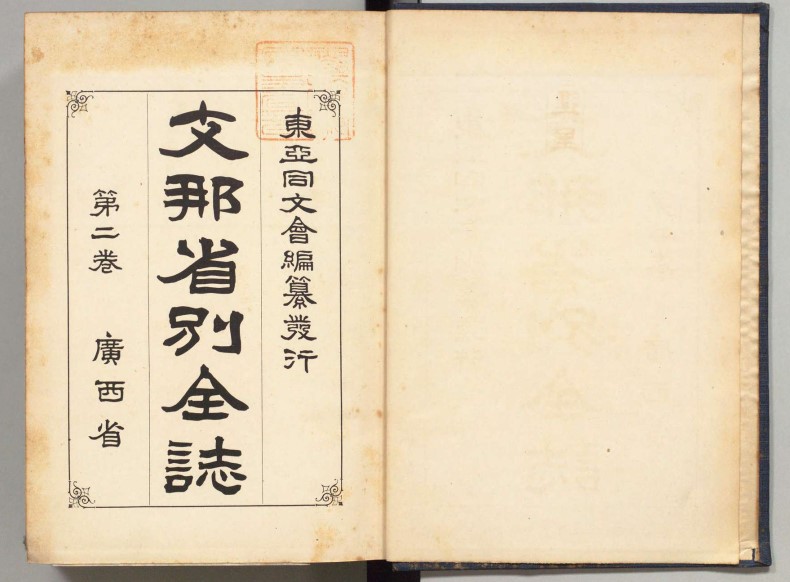 東亞同文會編纂發行
支那省別全誌
第二卷 廣西省